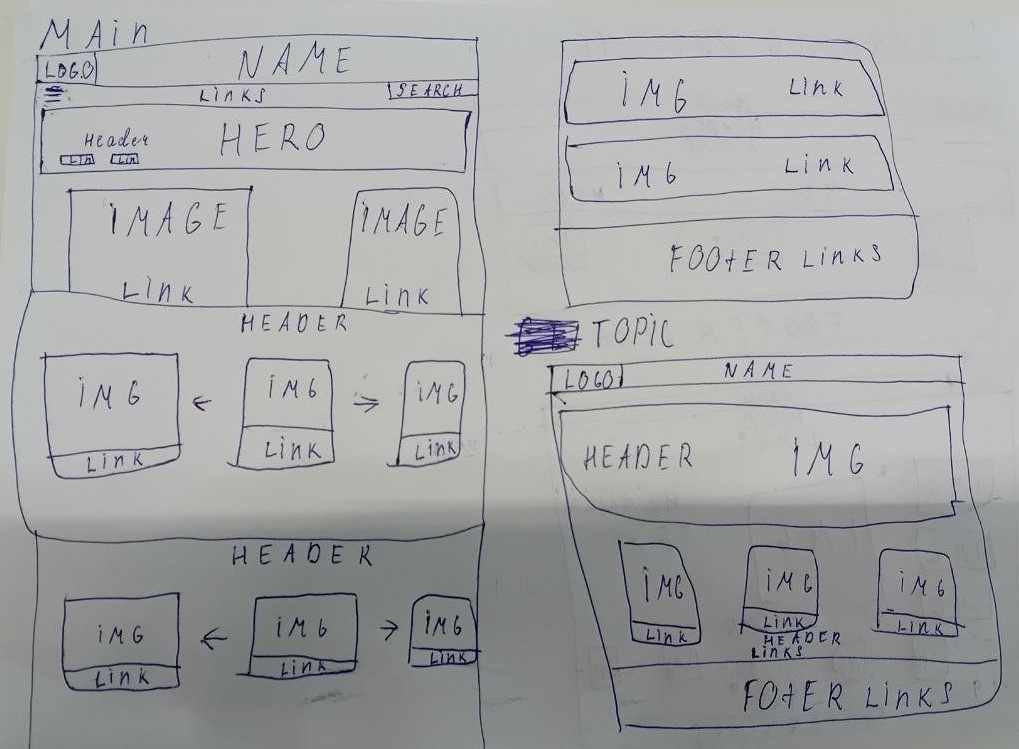 MAin
LOGO NAME
LinKS SEARCH
Header HERO
Lin Lin
iMAGE iMAGE
LinK LinK
HEADER
iMG iMG iMG
LinK LinK LinK
HEADER
iMG iMG iMG
LinK LinK LinK
iMG LinK
iMG LinK
FOOtER LinKS
TOPiC
LOGO NAME
HEADER iMG
iMG iMG iMG
LinK LinK LinK
HEADER
LinKS
FOtER LinKS